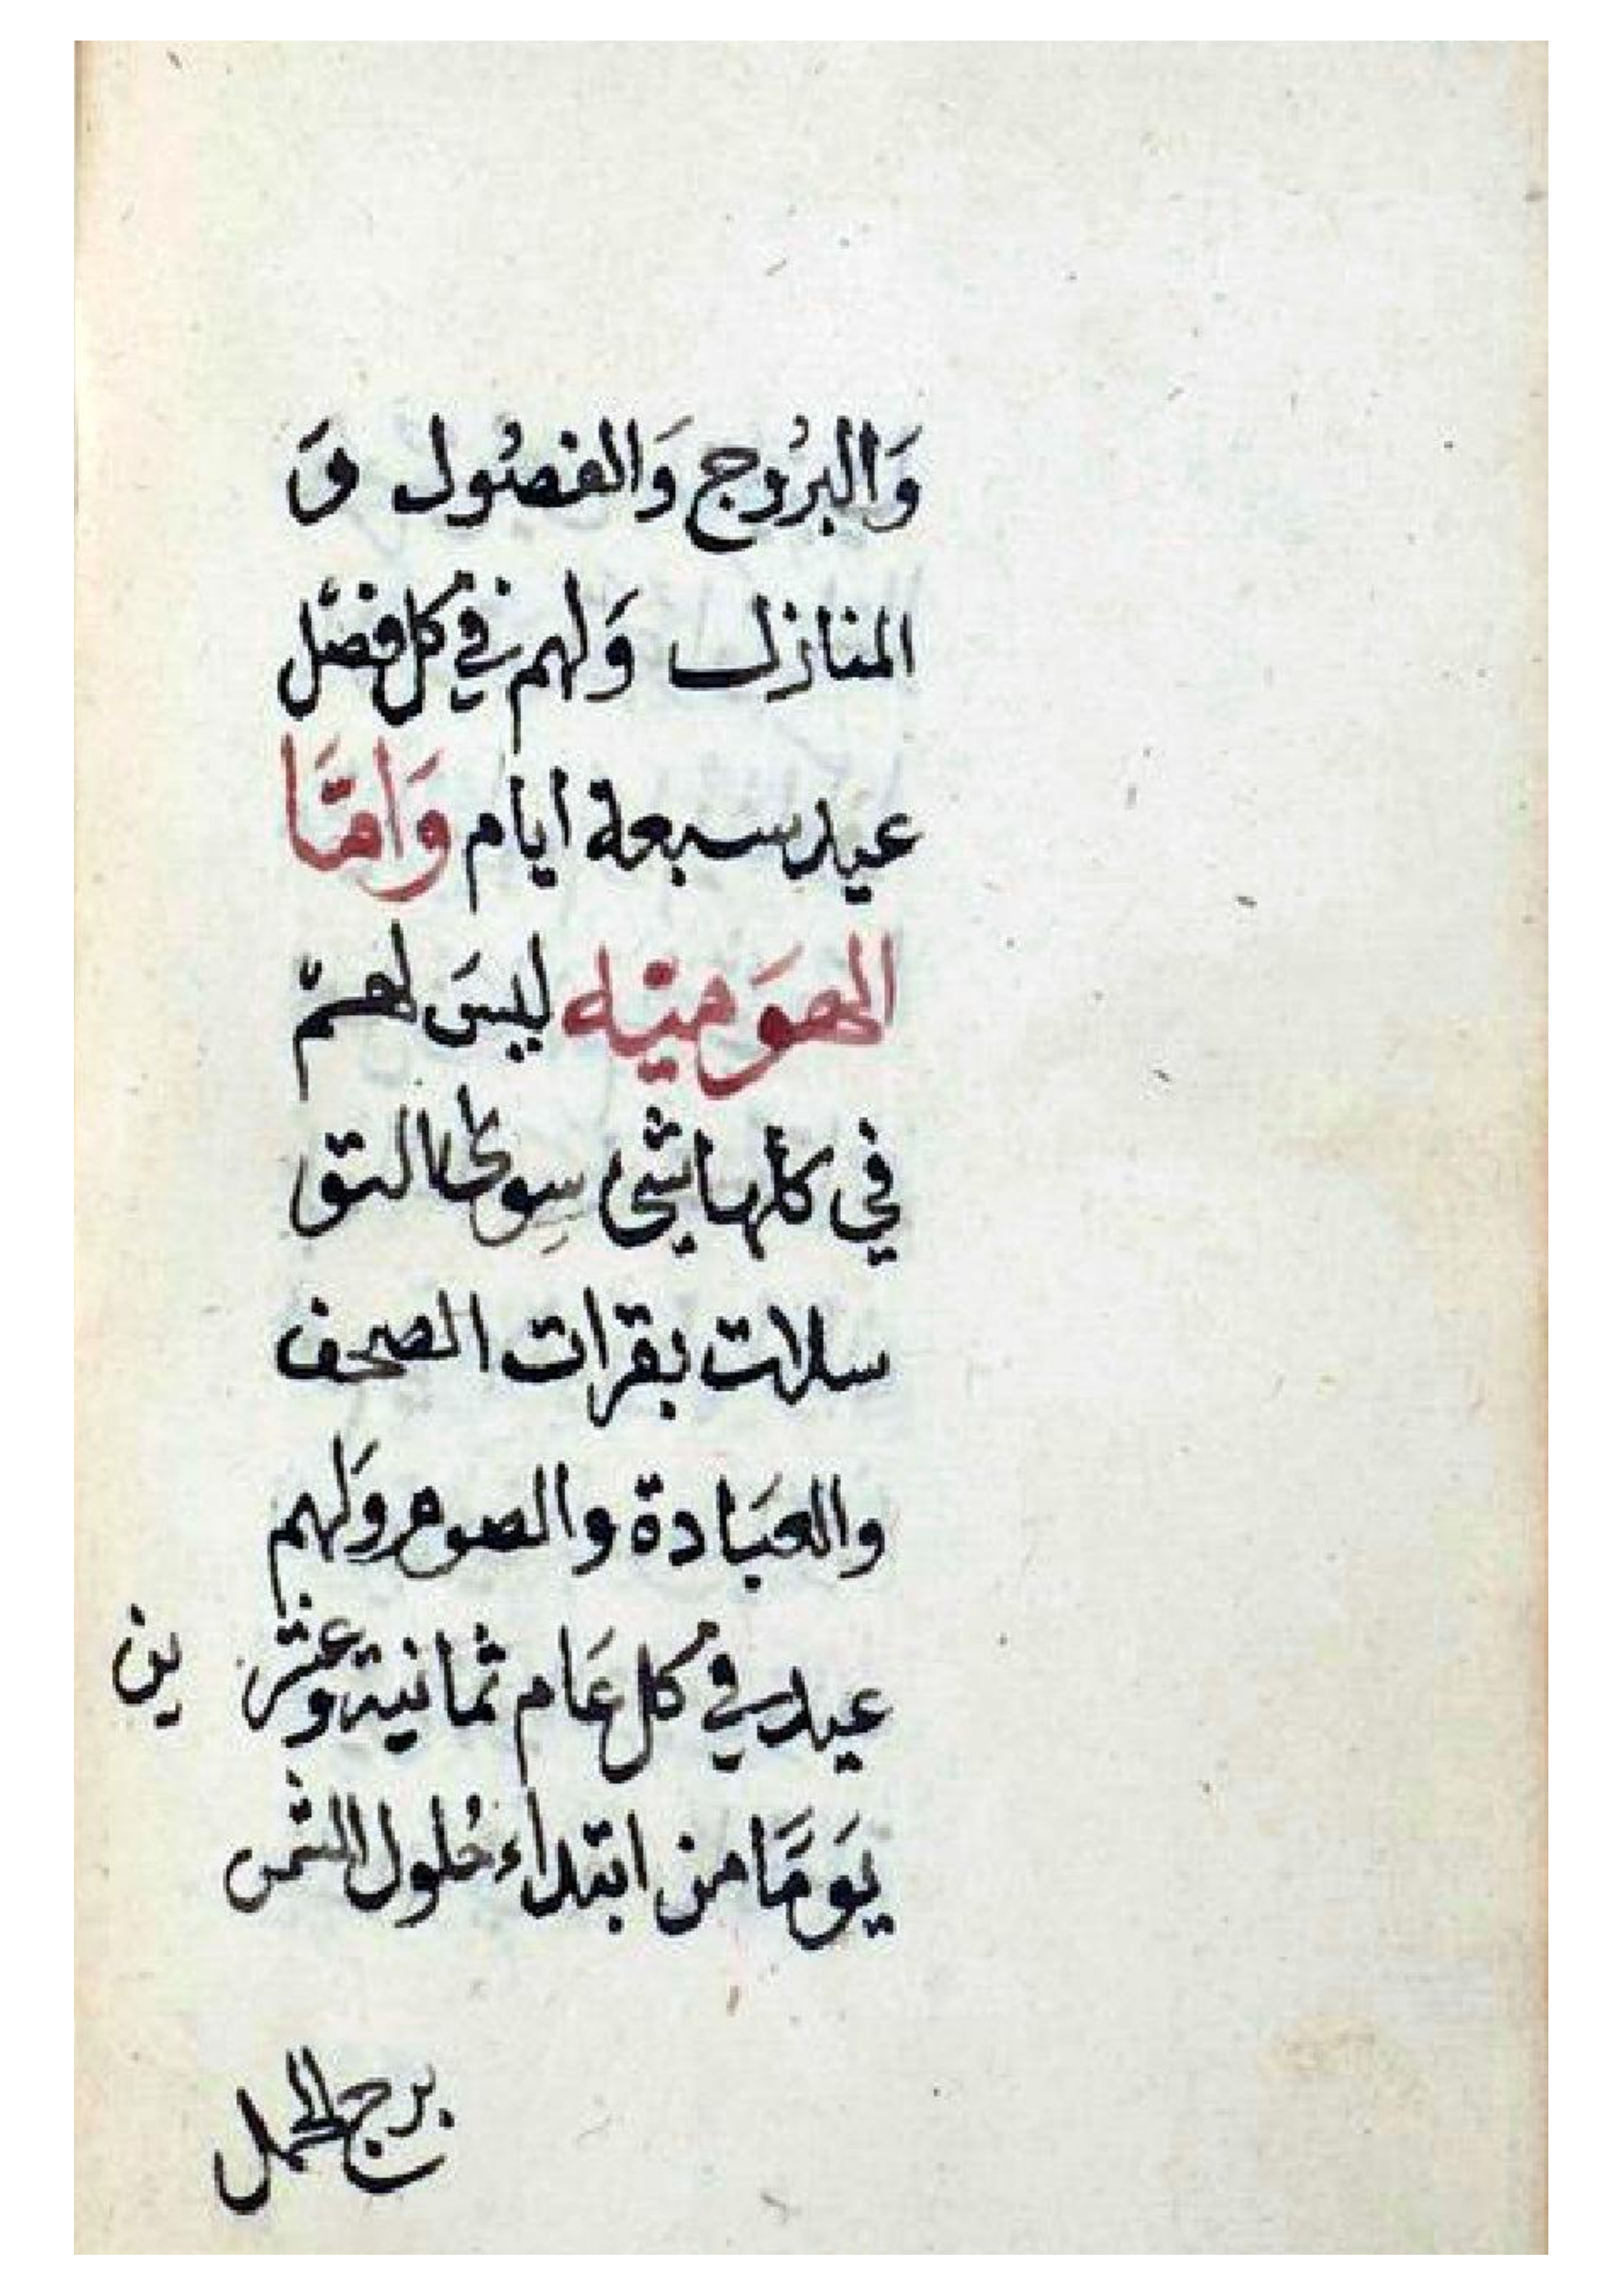 وَالبرُوج وَالفصُول وَ
المنازل وَلهم في كل فصل
عيد سبعة ايام وَامّا
الهوَمنيه ليسَ لهم
في كلها شي سِوى التو
سلات بقرات الصحف
والعبَادة والصوم ولَهم
عيد في كل عَام ثمانية وعشر ين
يَومًا من ابتداء حُلول الشمس
برج الحمل